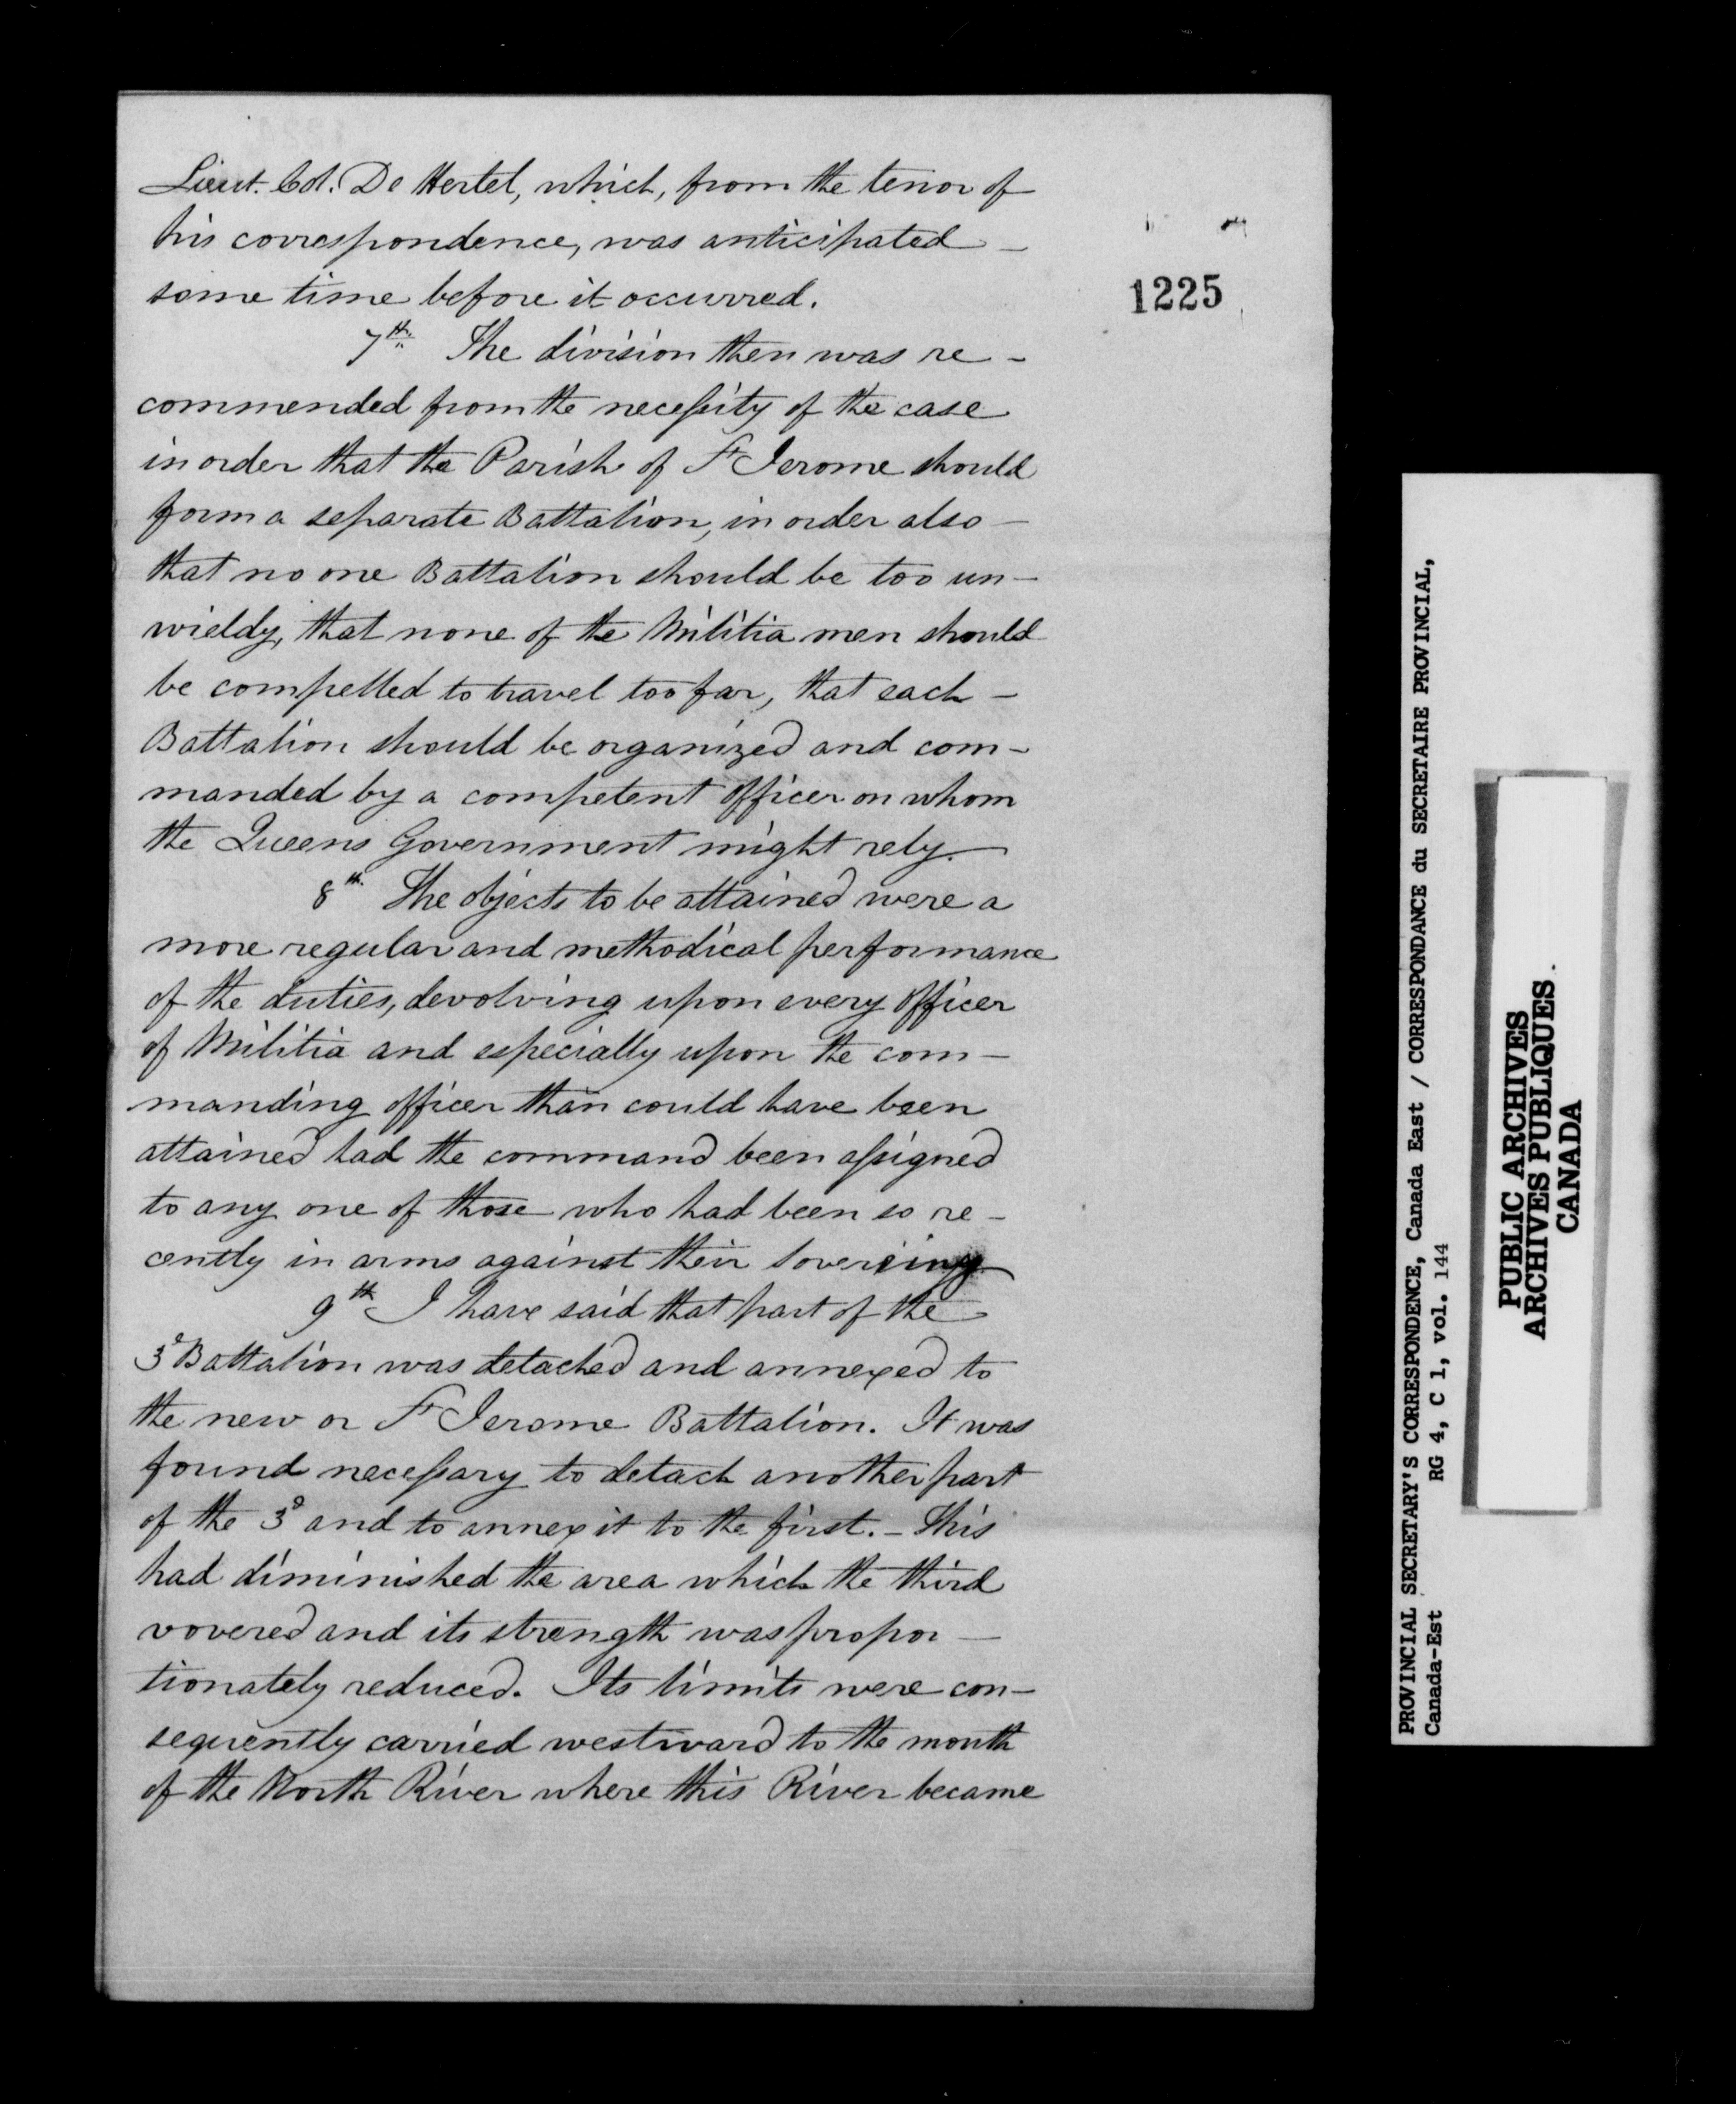 Lieut. Col. De Hertel, which, from the tenor of
his correspondence, was anticipated –
some time before it occurred.
1225
7th. The division then was re -
commended from the necessity of the case
in order that the Parish of St Jerome should
form a separate Battalion, in order also –
that no one Battalion should be too un –
wieldy, that none of the Militia men should
be compelled to travel too far, that each –
Battalion should be organized and com –
manded by a competent officer on whom
the Queens Government might rely. –
8th. The objects to be attained were a
more regular and methodical performance
of the duties, devolving upon every officer
of Militia and especially upon the com –
manding officer than could have been
attained had the command been assigned
to any one of those who had been so re –
cently in arms against their Sovereing
9th I have said that part of the
3d Battalion was detached and annexed to
the new or St Jerome Battalion. It was
found necessary to detach another part
of the 3d and to annex it to the first. – This
had diminished the area which the third
vovered and its strength was propor –
tionately reduced. Its limits were con –
sequently carried westward to the mouth
of the North River where this River became
PROVINCIAL SECRETARY'S CORRESPONDENCE, Canada East / CORRESPONDANCE du SECRETAIRE PROVINCIAL,
Canada-Est RG 4, C 1, vol. 144
PUBLIC ARCHIVES
ARCHIVES PUBLIQUES
CANADA